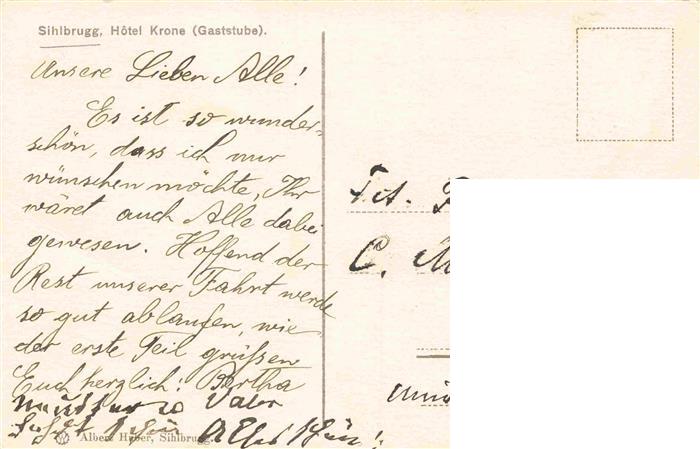 Sihlbrugg, Hôtel Krone (Gaststube).
Unsere Lieben Alle!
Es ist so wunder-
schön, dass ich nur
wünschen möchte, Ihr
wäret auch Alle dabei
gewesen. Hoffend der
Rest unserer Fahrt werde
so gut ablaufen, wie
der erste Teil grüßen
Euch herzlich: Bertha
Vater
Albert Huber, Sihlbrugg.
Tit.
C. M